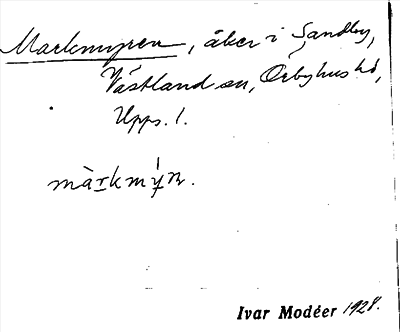 Markmyren, åker i Sandby,
Västland sn, Örbyhus hd,
Upps. l.
màrkmýɴ.
Ivar Modéer 1928.